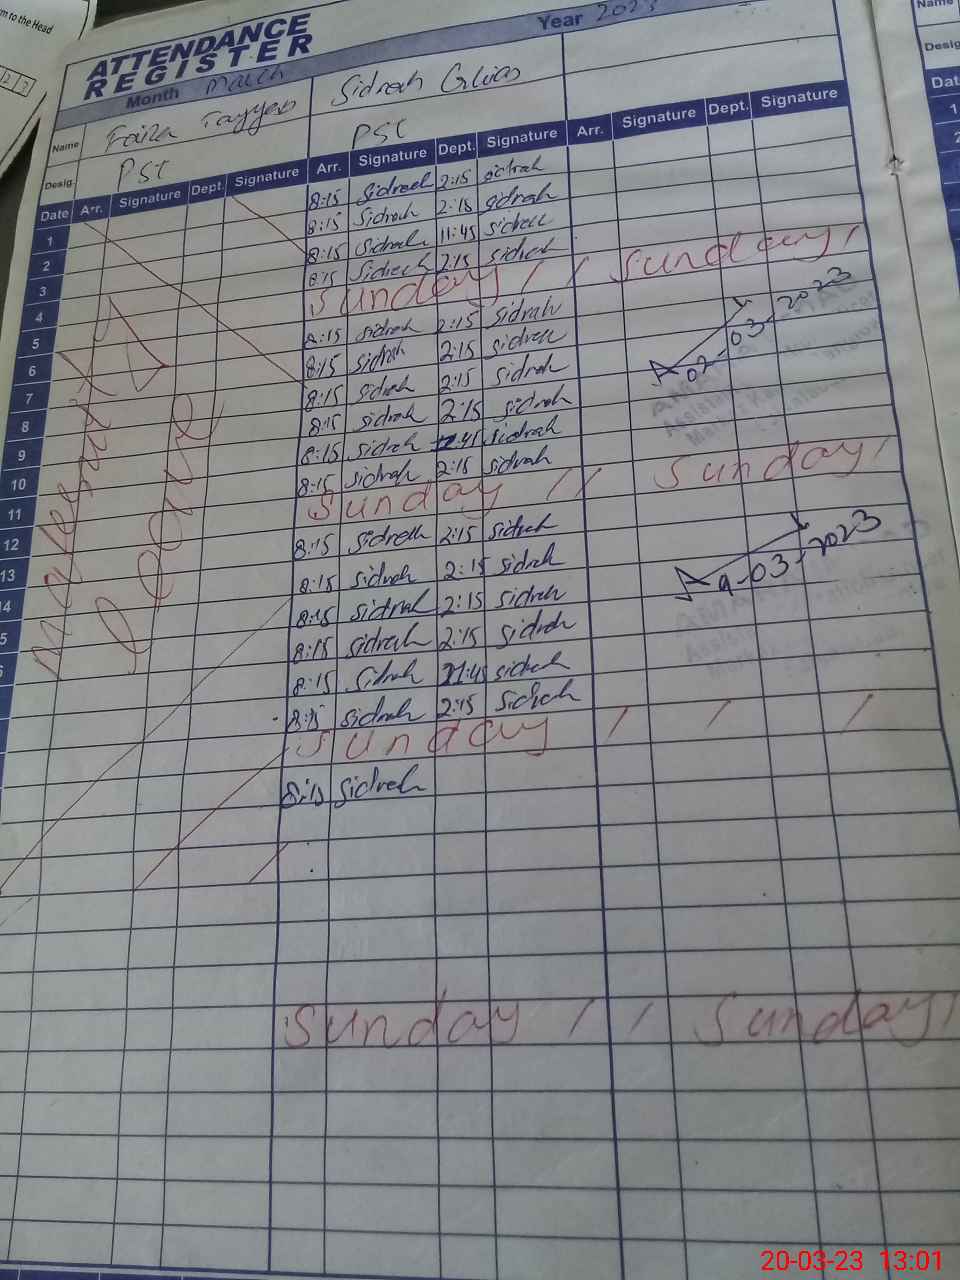 m to the Head
ATTENDANCE
REGISTER
Month March Year 2023
Name Faiza Tayyab Sidrah
Desig. PST PST
Date Arr. Signature Dept. Signature Arr. Signature Dept. Signature Arr. Signature Dept. Signature
1 8:15 Sidrah 2:15 sidrah
2 8:15 Sidrah 2:15 sidrah
3 8:15 Sidrah 11:45 sidrah
4 8:15 Sidrah 2:15 sidrah
5 Sunday / / Sunday /
6 8:15 sidrah 2:15 sidrah
7 8:15 sidrah 2:15 sidrah
8 8:15 sidrah 2:15 sidrah
9 8:15 sidrah 2:15 sidrah
10 8:15 sidrah 45 sidrah
11 8:15 sidrah 2:15 sidrah
12 Sunday / / Sunday /
13 8:15 sidrah 2:15 sidrah
14 8:15 sidrah 2:15 sidrah
5 8:15 sidrah 2:15 sidrah
8:15 sidrah 2:15 sidrah
8:15 Sidrah 11:45 sidrah
8:15 sidrah 2:15 sidrah
Sunday / / /
8:15 Sidrah
Sunday / / Sunday /
Leave
02-03-2023
9-03-2023
Name
Desig
Dat
1
2
20-03-23 13:01